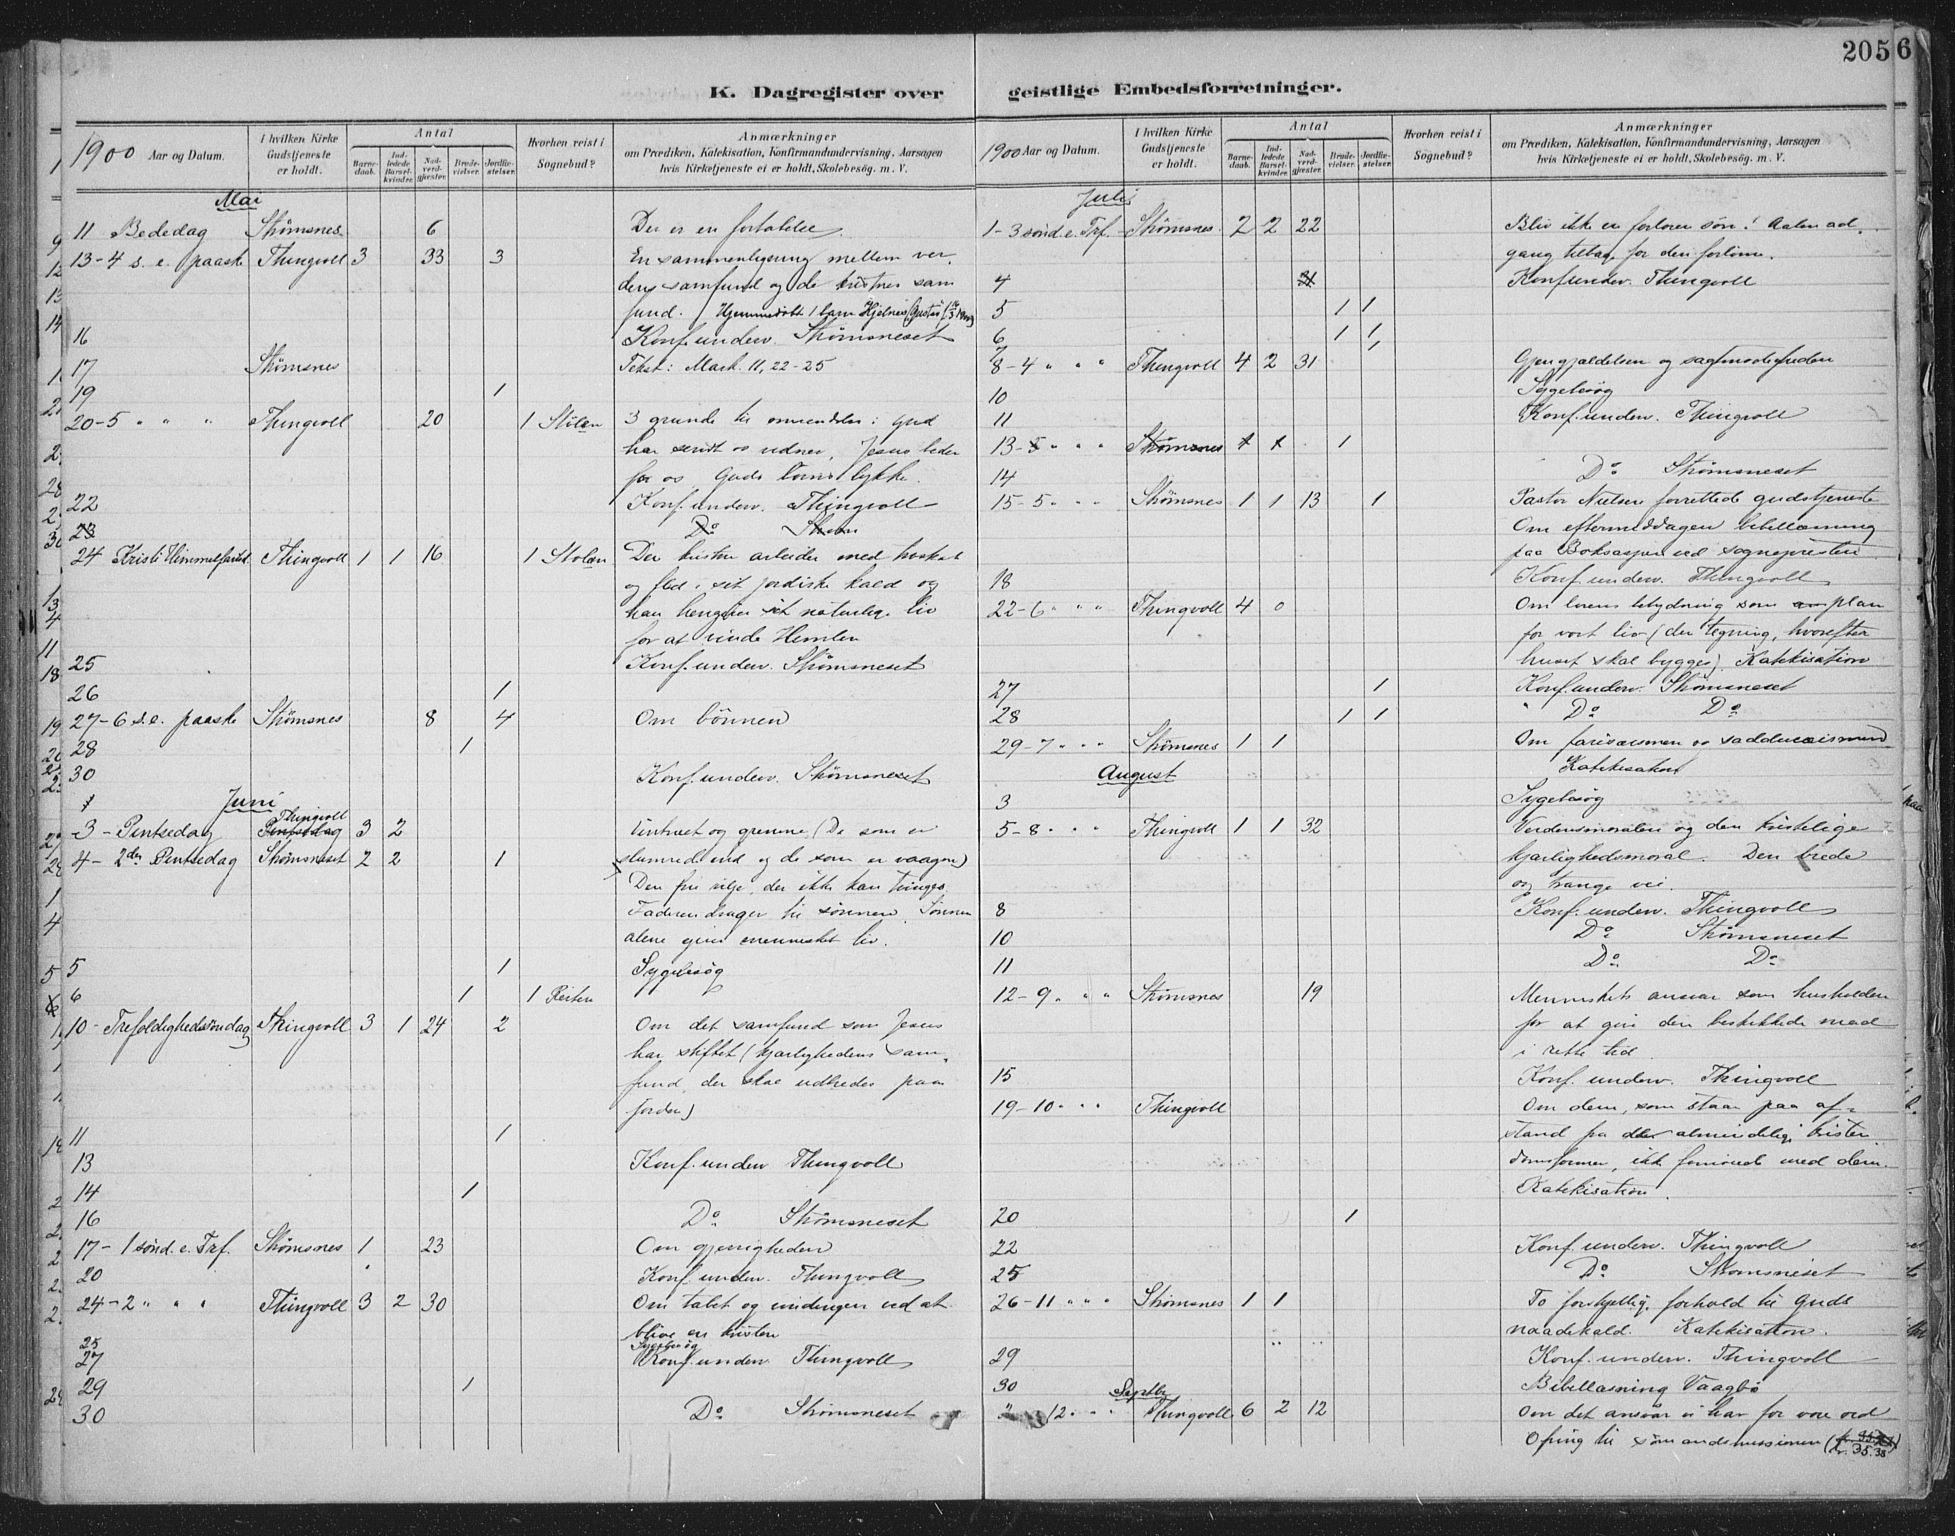 205 6
K. Dagregister over geistlige Embedsforretninger.
1900 Aar og Datum.
I hvilken Kirke Gudstjeneste er holdt.
Antal
Barnedaab.
Indledede Barselkvinder.
Nadverdgjæster.
Brudevielser.
Jordfæstelser.
Hvorhen reist i Sognebud?
Anmærkninger
om Prædiken, Katekisation, Konfirmandundervisning, Aarsagen
hvis Kirketjeneste ei er holdt, Skolebesøg. m. V.
Mai
11 Bededag Strømsnes 6 Der er en fortabelse.
13-4 s. e. paaske Thingvoll 3 33 3 En sammenligning mellem ver-
dens samfund og de kristnes sam
fund. Hjemmedøbt 1 barn
16 Konf. underv. Strømsneset
17 Strømsnes Tekst: Mark. 11, 22-25
19 1
20-5 " " " Thingvoll 20 1 Stølen 3 grunde til omvendelse: Gud
har sendt os vidner, Jesus beder
for os, Guds lykke.
22 Konf. underv. Thingvoll
23 Do Strøm
24 Kristi Himmelfartsd. Thingvoll 1 1 16 1 Stølen Den kristne arbeider med kraft
og flid i sit jordiske kald og
han hengiver sit naturlige liv
for at vinde Himlen
25 Konf. underv. Strømsneset
26 1
27-6 s.e. paaske Strømsnes 8 4 Om bønnen
28 1
30 Konf. underv. Strømsneset
Juni
Thingvoll
3-Pintsedag Pintsedag 3 2 Vintræet og grenene (De som er
4-2den Pintsedag Strømsneset 2 2 1 slumret ind og de som er vaagne)
Den frie vilje, der ikke kan tvinges.
Faderen drager til sønnen, Sønnen
alene giver mennesket liv.
5 1 Sygebesøg
6 1 1 Reiten
10-Trefoldighedssøndag Thingvoll 3 1 24 2 Om det samfund som Jesus
har stiftet (kjærlighedens sam-
fund, der skal udbredes paa
jorden)
11 1
13 Konf. underv Thingvoll
14 1
16 Do Strømsneset
17-1 sønd. e. Tref. Strømsnes 1 23 Om gjerrigheden
20 Konf. underv. Thingvoll
24-2 " " " Thingvoll 3 2 30 Om tabet og vindingen ved at
blive en kristen
25 Sygebesøg
27 Konf. underv. Thingvoll
29 1
30 Do Strømsneset
1900 Aar og Datum.
I hvilken Kirke Gudstjeneste er holdt.
Antal
Barnedaab.
Indledede Barselkvinder.
Nadverdgjæster.
Brudevielser.
Jordfæstelser.
Hvorhen reist i Sognebud?
Anmærkninger
om Prædiken, Katekisation, Konfirmandundervisning, Aarsagen
hvis Kirketjeneste ei er holdt, Skolebesøg. m. V.
Juli
1-3 sønd. e. Trf. Strømsnes 2 2 22 Bliv ikke en forloren søn! Aaben ad-
gang tilbage for den forlorne.
4 31 Konf. underv. Thingvoll
5 1 1
6 1 1
7 1
8-4 " " " Thingvoll 4 2 31 Gjengjældelsen og sagtmodigheden
10 Sygebesøg
11 Konf. underv. Thingvoll
13-5 " " " Strømsnes 1 1 1
14 Do Strømsneset
15-5 " " Strømsnes 1 1 13 1 Pastor Nielsen forrettede gudstjeneste
Om eftermiddagen bibellæsning
paa Boksaspen ved sognepresten
18 Konf. underv. Thingvoll
22-6 " " " Thingvoll 4 0 Om lovens betydning som plan
for vort liv (den tegning, hvorefter
huset skal bygges). Katekisation
27 1 Konf. underv. Strømsneset
28 1 1 " Do Do
29-7 " " " Strømsnes 1 1 Om farisæismen og sadducæismen
Katekisation
August
3 Sygebesøg
5-8 " " " Thingvoll 1 1 32 Verdensmoralen og den kristelige
kjærlighedsmoral. Den brede
og trange vei.
8 Konf. underv. Thingvoll
10 Do Strømsneset
11 Do Do
12-9 " " " Strømsnes 19 Menneskets ansvar som husholder
for at give den beskikkede mad
i rette tid
15 Konf. underv. Thingvoll
19-10 " " " Thingvoll Om dem, som staar paa af-
stand fra de almindelige kristen
domsformer, ikke fornøiet med dem.
Katekisation.
20 1
22 Konf. underv. Thingvoll
25 Do Strømsneset
26-11 " " " Strømsnes 1 1 To forskjellige forhold til Guds
naadekald. Katekisation.
29 Konf. underv. Thingvoll
30 Bibellæsning Vaagbø
Septbr
12 " " " Thingvoll 6 2 12 Om det ansvar vi har for vore ord
Ofring til sømandsmissionen (kr. 35.35)